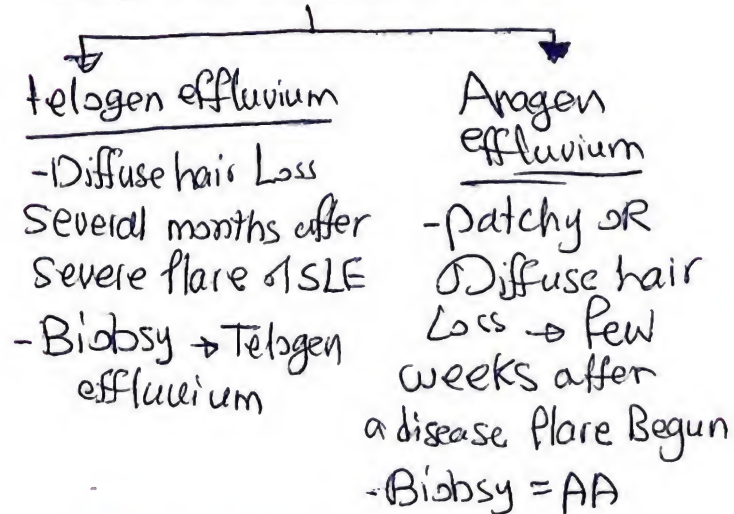 telogen effluvium
-Diffuse hair Loss
Several months after
Severe flare of SLE
- Biobsy → Telogen
effluvium
Anagen
effluvium
- patchy OR
Diffuse hair
Loss → few
weeks after
a disease flare Begun
- Biobsy = AA